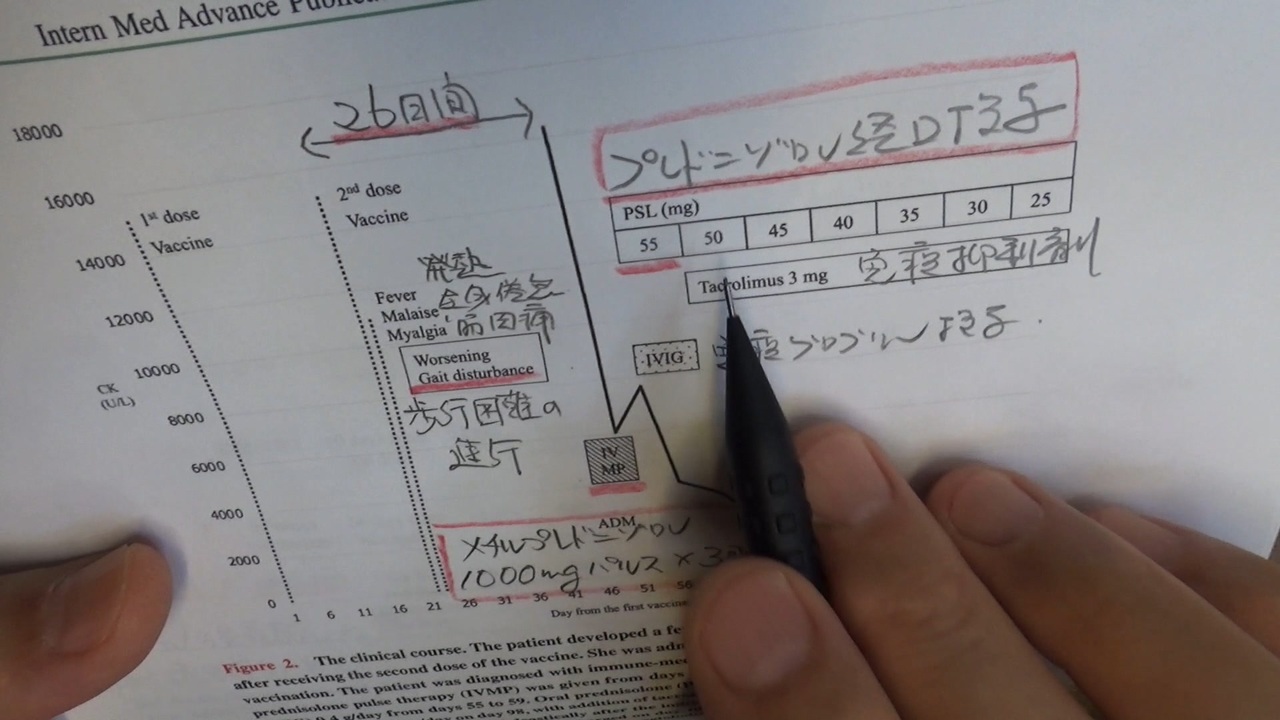 Intern Med Advance
26日間
プレドニゾロン経口投与
18000
16000
14000
12000
10000
8000
6000
4000
2000
0
CK
(U/L)
1st dose
Vaccine
2nd dose
Vaccine
PSL (mg)
55 50 45 40 35 30 25
Tacrolimus 3 mg 免疫抑制剤
発熱
Fever
Malaise 全身倦怠
Myalgia 筋肉痛
Worsening
Gait disturbance
歩行困難の
進行
IVIG 疫グロブリン投与.
IV
MP
ADM
メチルプレドニゾロン
1000mgパルス×3
1 6 11 16 21 26 31 36 41 46 51 56
Day from the first vaccine
Figure 2. The clinical course. The patient developed a
after receiving the second dose of the vaccine. She was
vaccination. The patient was diagnosed with
prednisolone pulse therapy (IVMP) was given from days
g/day from days 55 to 59. Oral prednisolone
on day 98, with addition of